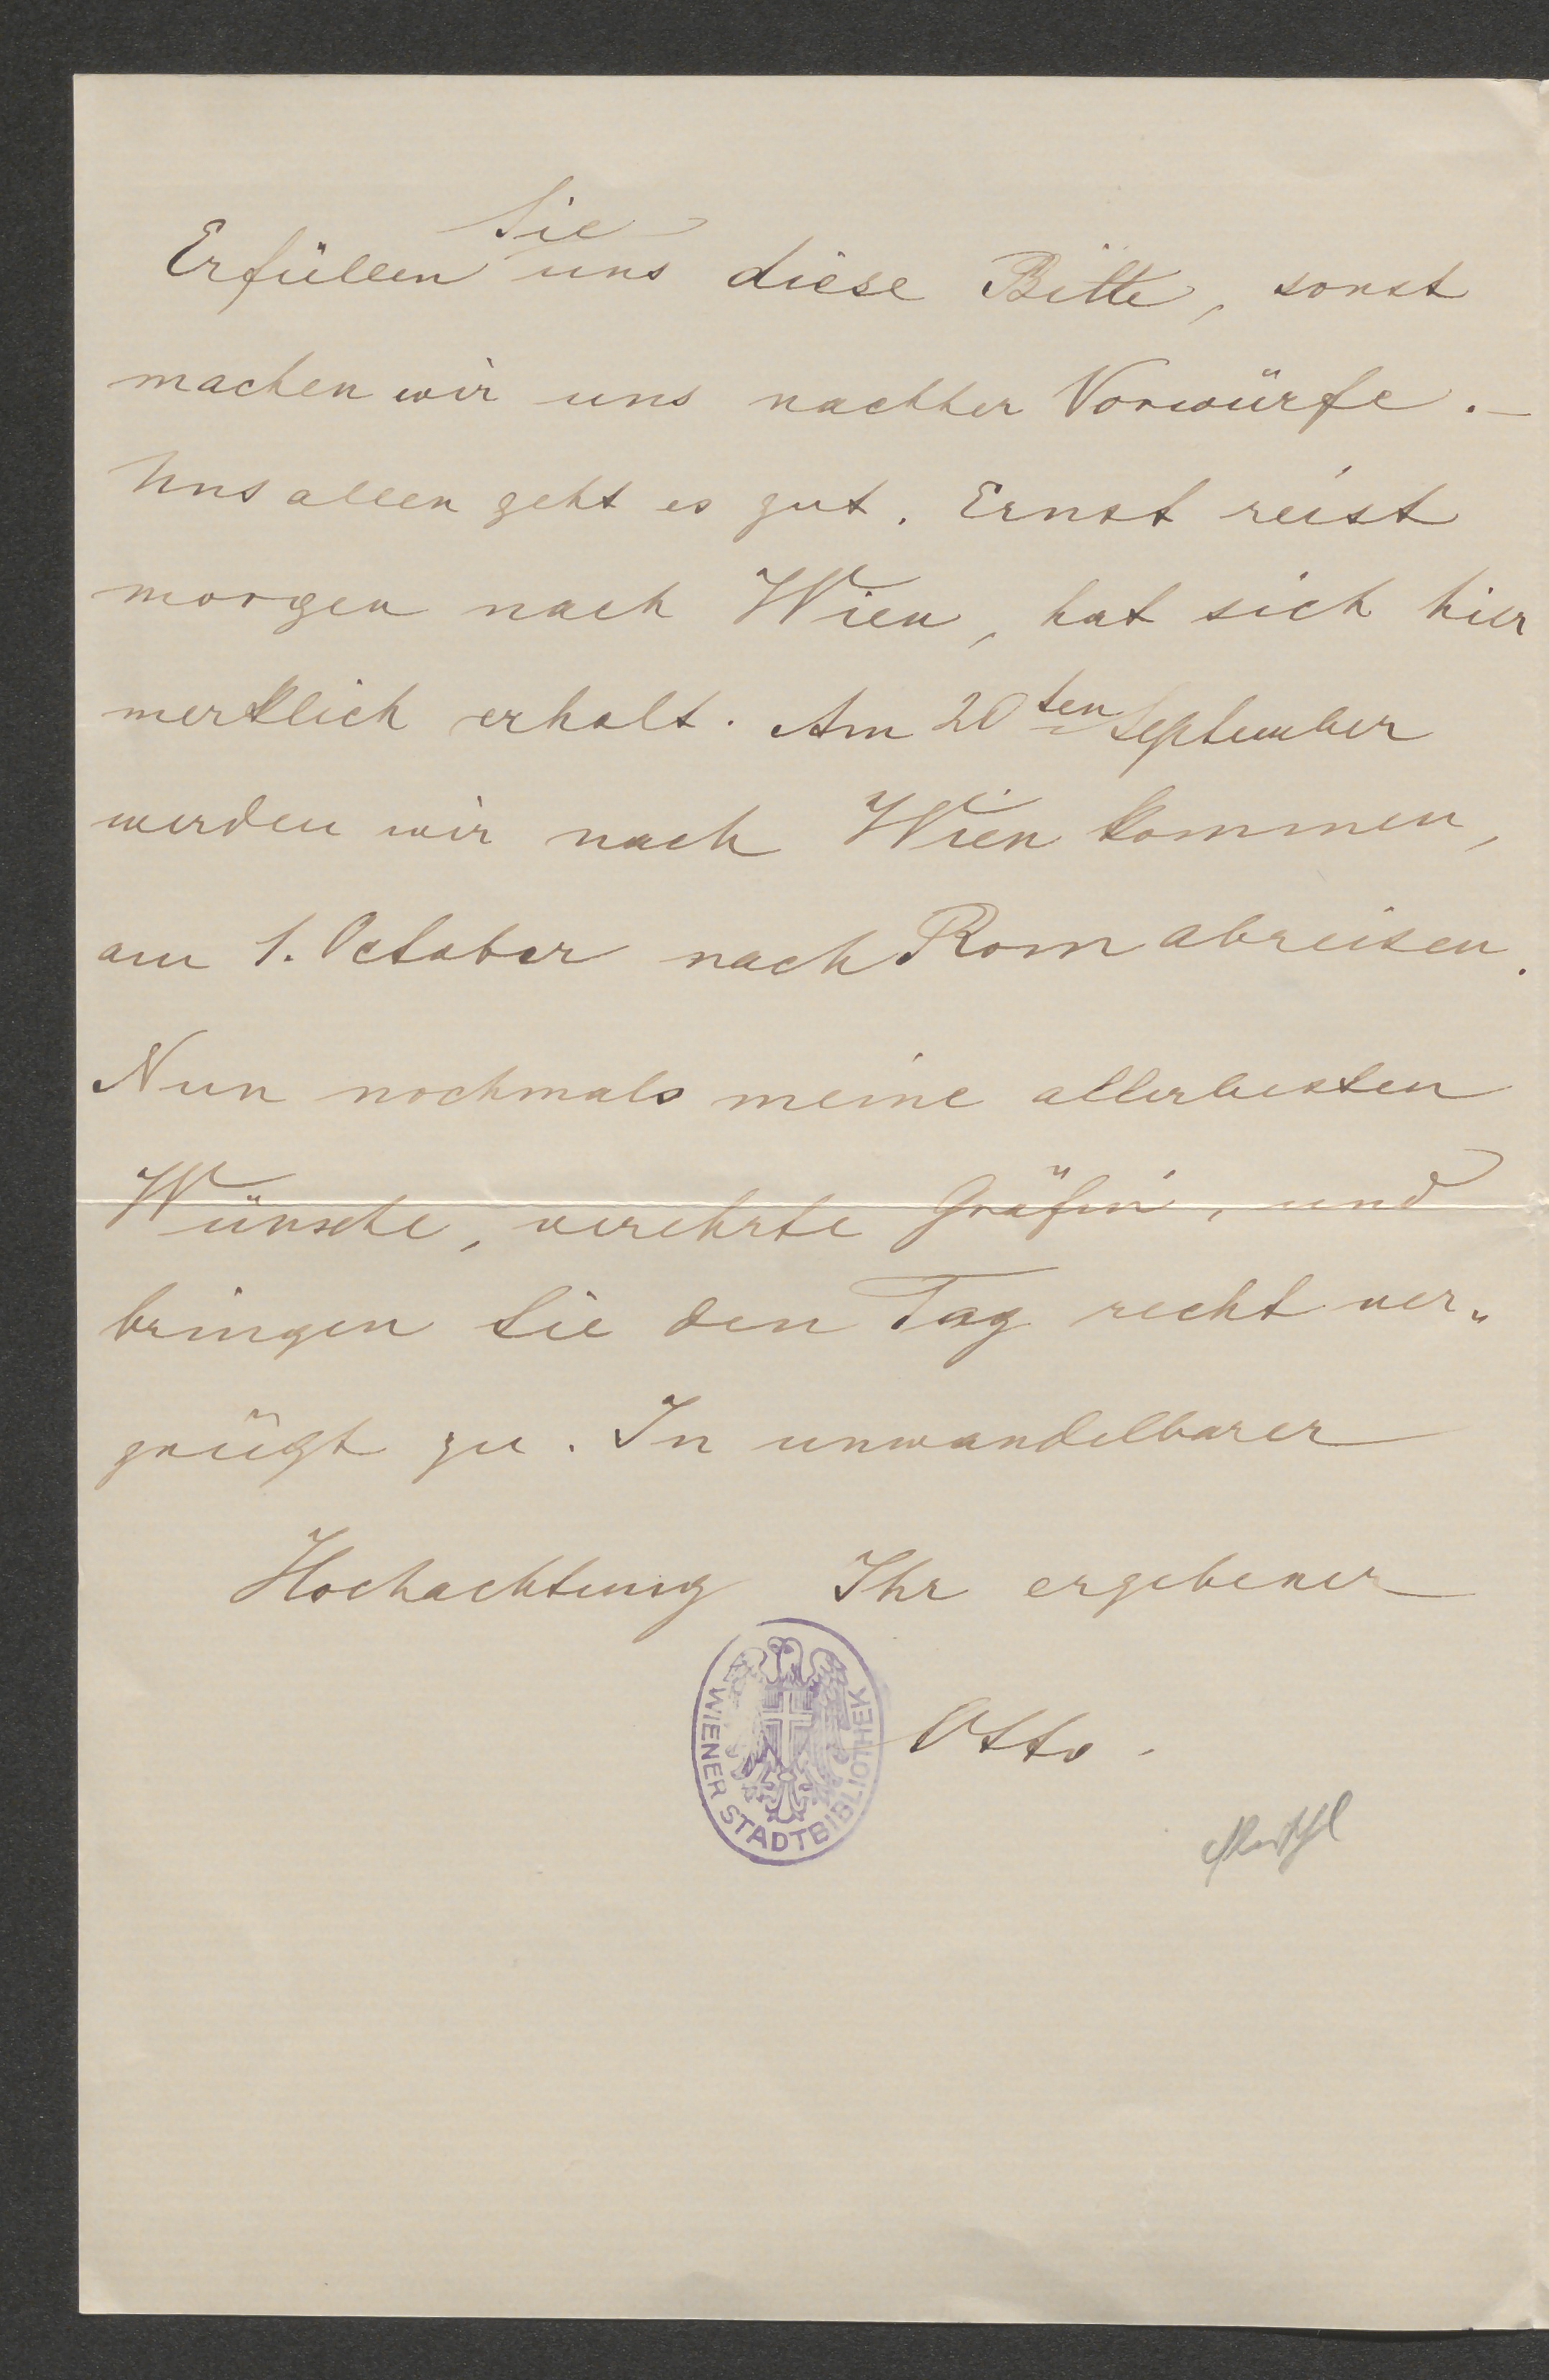 Sie
Erfüllen uns diese Bitte, sonst
machen wir uns nachher Vorwürfe. –
Uns allen geht es gut. Ernst reist
morgen nach Wien, hat sich hier
merklich erholt. Am 20ten September
werden wir nach Wien kommen,
am 1. October nach Rom abreisen.
Nun nochmals meine allerbesten
Wünsche, verehrte Gräfin, und
bringen Sie den Tag recht ver„
gnügt zu. In unwandelbarer
Hochachtung Ihr ergebener
Otto.
WIENER STADTBIBLIOTHEK